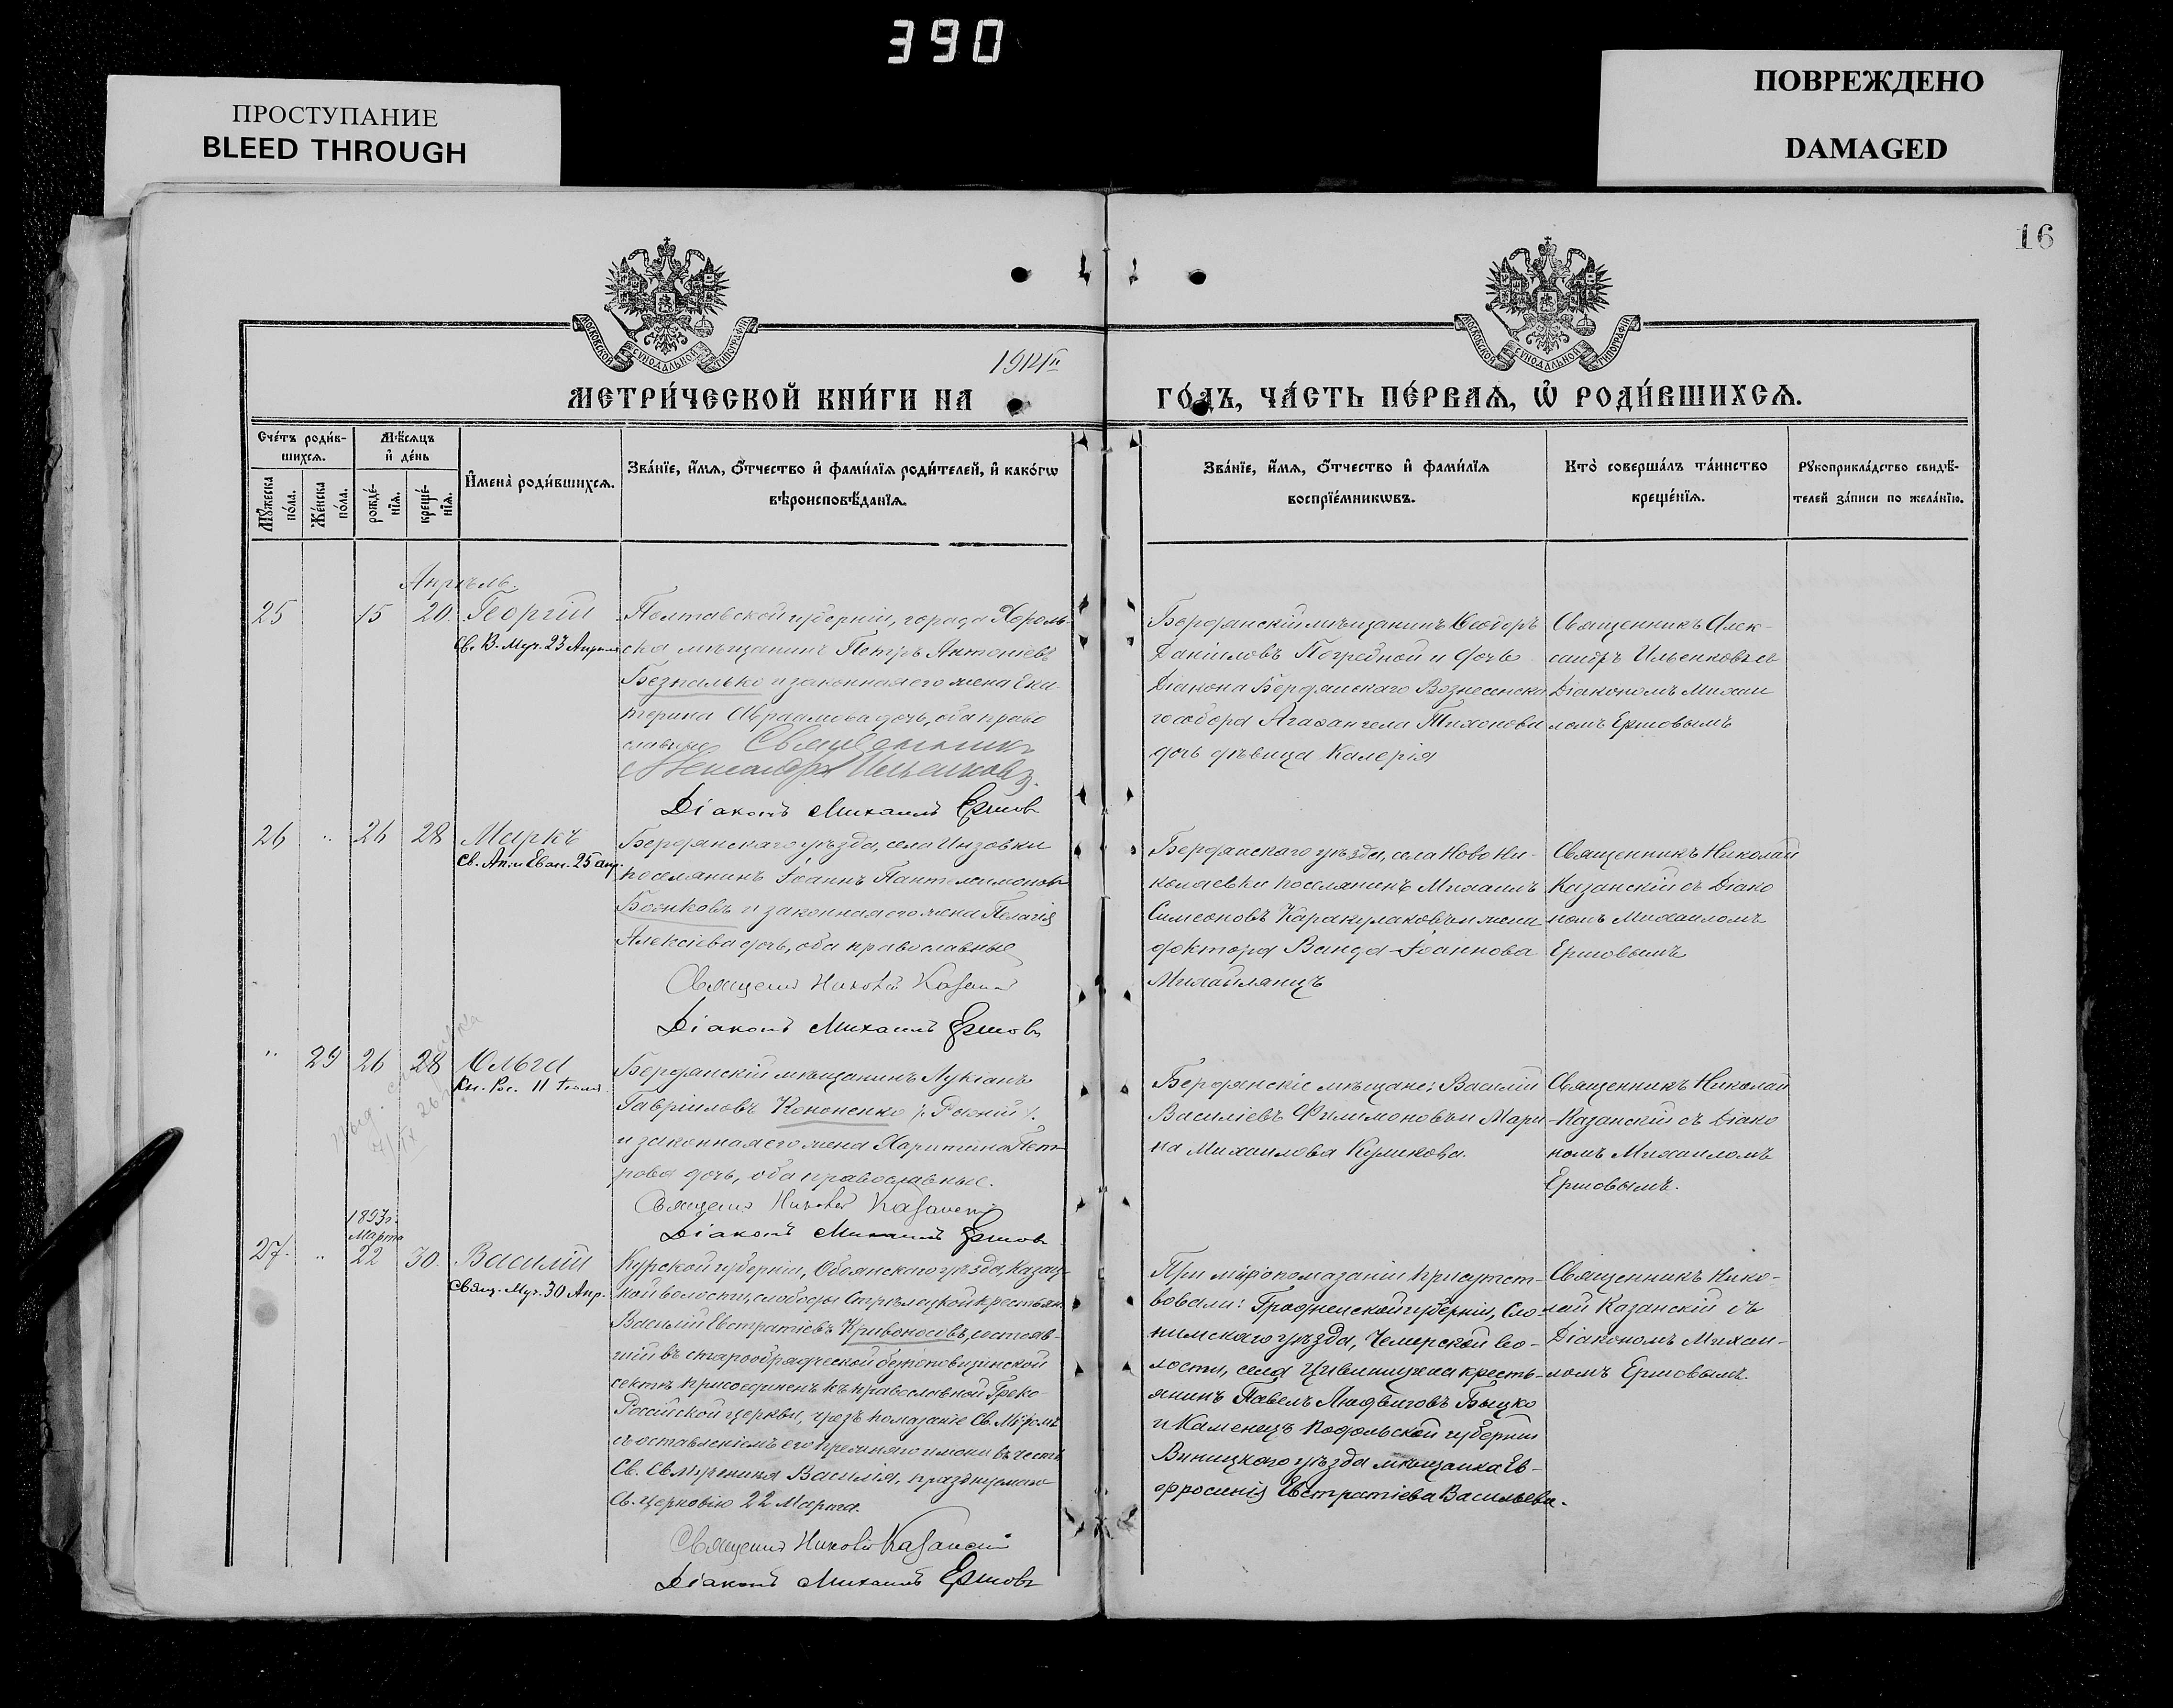 390
ПРОСТУПАНИЕ
BLEED THROUGH
ПОВРЕЖДЕНО
DAMAGED
16
МОСКОВСКОЙ СѴНОДАЛЬНОЙ ТИПОГРАФІИ
МОСКОВСКОЙ СѴНОДАЛЬНОЙ ТИПОГРАФІИ
МЕТРИ́ЧЕСКОЙ КНИ́ГИ НА 1914й
ГО́ДЪ, ЧА́СТЬ ПЕ́РВАѦ, Ѡ҆ РОДИ́ВШИХСѦ.
Сче́тъ роди́в-
шихсѧ.
Мꙋ́жеска по́ла.
Же́нска по́ла.
Мѣ́сѧцъ
и҆ де́нь
рожде́-
нїѧ.
креще́-
нїѧ.
И҆мена̀ роди́вшихсѧ.
Зва́нїе, и҆́мѧ, ѻ҆́тчество и҆ фами́лїѧ роди́телей, и҆ како́гѡ
вѣроисповѣ́данїѧ.
Зва́нїе, и҆́мѧ, ѻ҆́тчество и҆ фами́лїѧ
воспрїе́мникѡвъ.
Кто̀ соверша́лъ та́инство
креще́нїѧ.
Рꙋкоприкла́дство свидѣ́-
телей за́писи по жела́нїю.
Апрѣль.
25 15 20. Георгій
Св. В. Муч. 23 Апрѣля
Полтавской губерніи, города Хороль-
ска мѣщанинъ Петръ Антоніевъ
Безпалько и законная его жена Ека-
терина Авраамова дочь, оба право
славные. Священникъ
Александръ Ильенковъ.
Діаконъ Михаилъ Ершов
Бердянскій мѣщанинъ Ѳеодоръ
Даниловъ Погребной и дочь
Діакона Бердянскаго Вознесенска
го собора Агаѳангела Тихонови
дочь дѣвица Калерія
Священникъ Алек-
сандръ Ильенковъ съ
Діакономъ Михаи
ломъ Ершовымъ
26 " 26 28 Маркъ
Св. Ап. и Еван. 25 апр.
Бердянскаго уѣзда, села Инзовки
поселянинъ Іоаннъ Пантелеимоновъ
Боянковъ и законная его жена Пелагія
Алексіева дочь, оба православные
Священ Николай Казанскій
Діаконъ Михаилъ Ершовъ
Бердянскаго уѣзда, села Ново Ни-
колаевки поселянинъ Михаилъ
Симеоновъ Каракулаковъ и жена
доктора Ванда Іоаннова
Михайлянцъ
Священникъ Николай
Казанскій съ Діако
номъ Михаиломъ
Ершовымъ
" 29 26 28 Ольга
Кн. Рос. 11 Іюля
Бердянскій мѣщанинъ Лукіанъ
Гавріиловъ Кононенко
и законная его жена Харитина Пет-
рова дочь, оба православные.
Священ Николай Казанскій
Діаконъ Михаилъ Ершовъ
Бердянскіе мѣщане: Василій
Василіевъ Филимоновъ и Мари
на Михаилова Куликова.
Священникъ Николай
Казанскій съ Діако
номъ Михаиломъ
Ершовымъ.
1893 г.
Марта
27. " 22 30. Василій
Свящ. Муч. 30 Апр.
Курской губерніи, Обоянскаго уѣзда, Казац-
кой волости, слободы Стрѣлецкой крестьян.
Василій Евстратіевъ Кривоносовъ, состояв-
шій въ старообрядческой безпоповщинской
сектѣ присоединенъ къ православной Греко-
Россійской церкви, чрезъ помазаніе Св. Мѵромъ
съ оставленіемъ его прежняго имени въ честь
Св. Свмученика Василія, празднуемаго
Св. церковію 22 Марта.
Священ Николай Казанскій
Діаконъ Михаилъ Ершовъ
При мѵропомазаніи присутст-
вовали: Гродненской губерніи, Сло-
нимскаго уѣзда, Чемерской во-
лости, села кресть-
янинъ Павелъ Людвиговъ Быцко
и Каменецъ Подольской губерніи
Виницкаго уѣзда мѣщанка Ев-
фросинія Евстратіева Васильева.
Священникъ Нико-
лай Казанскій съ
Діакономъ Михаи-
ломъ Ершовымъ.